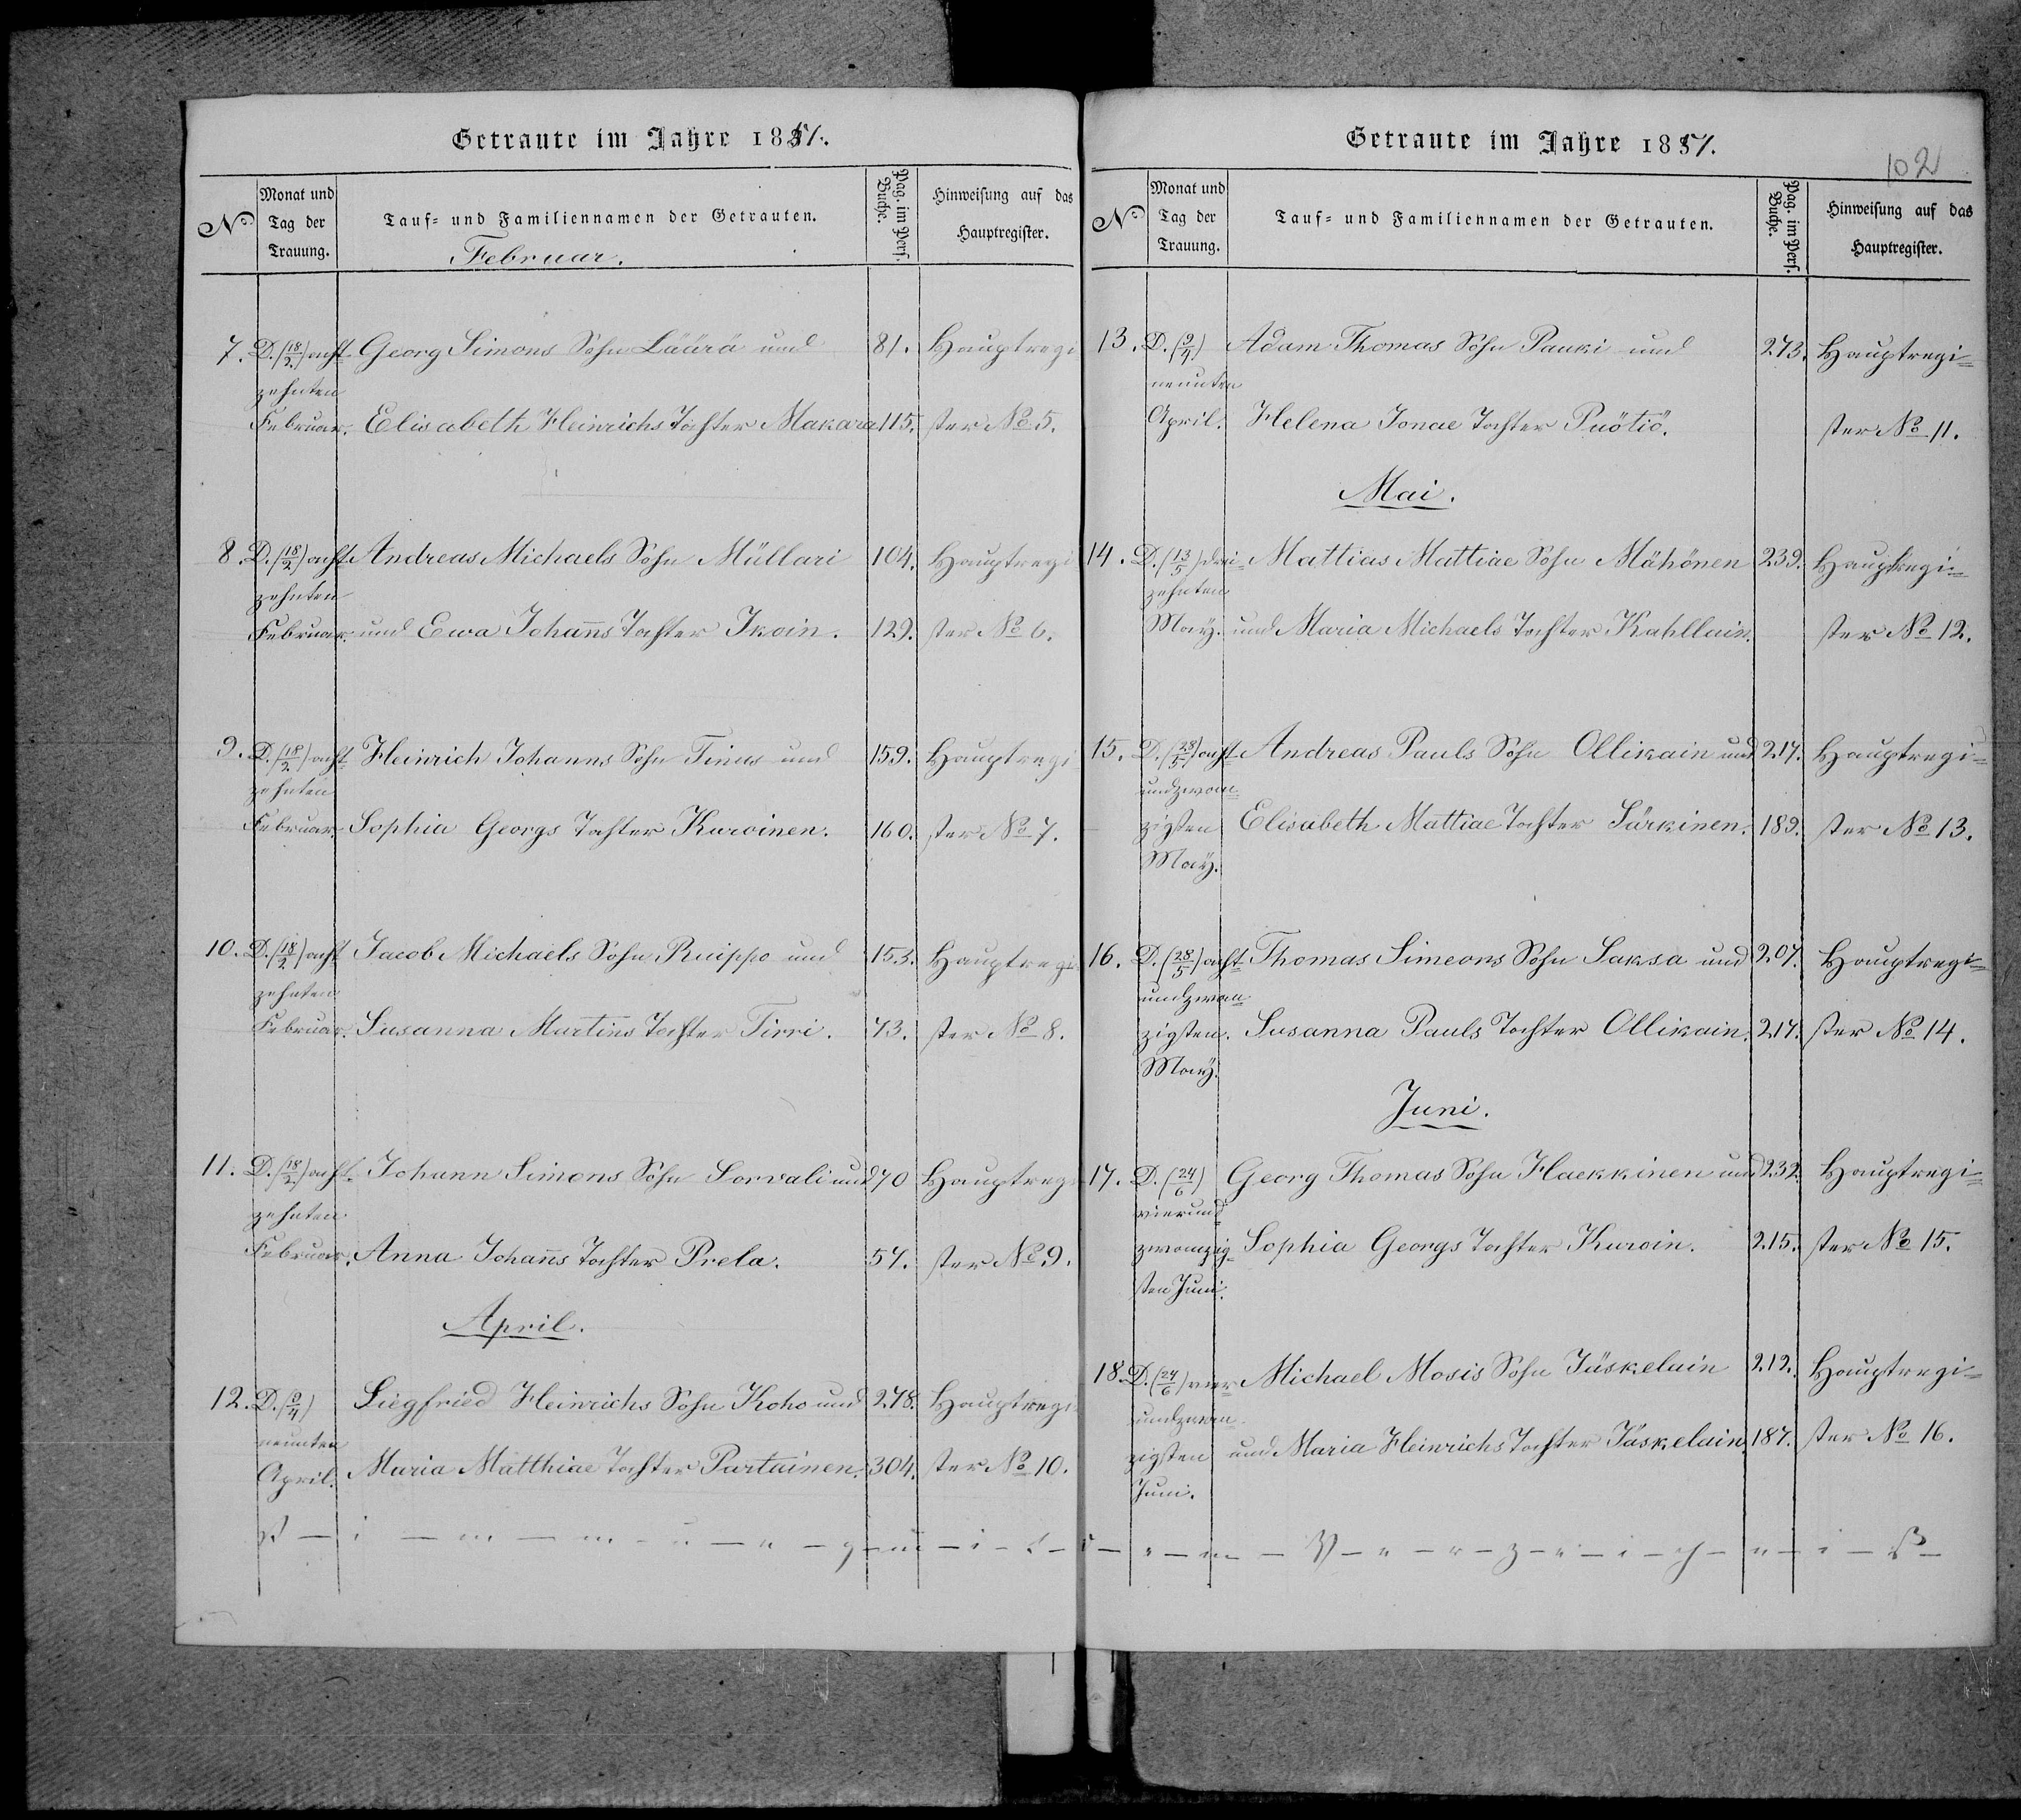 Getraute im Jahre 1857.
No. Monat und Tag der Trauung. Tauf- und Familiennamen der Getrauten. Pag. im Pers. Buche. Hinweisung auf das Hauptregister.
Februar.
7. D. (18/2) acht- Georg Simons Sohn Läärä und 81. Hauptregi
zehnten
Februar. Elisabeth Heinrichs Tochter Makara 115. ster No 5.
8. D. (18/2) acht- Andreas Michaels Sohn Müllari 104. Hauptregi
zehnten
Februar. und Ewa Johanns Tochter Ikoin. 129. ster No 6.
9. D. (18/2) acht- Heinrich Johanns Sohn Tinus und 159. Hauptregi
zehnten
Februar. Sophia Georgs Tochter Kuroinen. 160. ster No 7.
10. D. (18/2) acht Jacob Michaels Sohn Ruippo und 153. Hauptregi
zehnten
Februar. Susanna Martins Tochter Tirri. 73. ster No 8.
11. D. (18/2) acht- Johann Simons Sohn Sorvali und 70 Hauptreg
zehnten
Februar. Anna Johanns Tochter Prela. 57. ster No 9.
April.
12. D. (9/4) Siegfried Heinrichs Sohn Koho und 278. Hauptregi
neunten
April. Maria Matthiae Tochter Partainen. 304. ster No 10.
Getraute im Jahre 1857.
102
No. Monat und Tag der Trauung. Tauf- und Familiennamen der Getrauten. Pag. im Pers. Buche. Hinweisung auf das Hauptregister.
13. D. (9/4) Adam Thomas Sohn Pauki und 273. Hauptregi-
neunten
April. Helena Jonae Tochter Puötiö. ster No 11.
Mai.
14. D. (13/5) drei- Mattias Mattiae Sohn Mähönen 239. Hauptregi-
zehnten
May. und Maria Michaels Tochter Kahllain. ster No 12.
15. D. (28/5) acht- Andreas Pauls Sohn Ollikain und 217. Hauptregi-
undzwan-
zigsten Elisabeth Mattiae Tochter Särkinen. 189. ster No 13.
May.
16. D. (28/5) acht- Thomas Simeons Sohn Saksa und 207. Hauptregi-
undzwan-
zigsten. Susanna Pauls Tochter Ollikain. 217. ster No 14.
May.
Juni.
17. D. (24/6) Georg Thomas Sohn Haekkinen und 232. Hauptregi-
vierund-
zwanzig- Sophia Georgs Tochter Kuroin. 215. ster No 15.
sten Juni.
18. D. (24/6) vier- Michael Mosis Sohn Jäskelain 212. Hauptregi-
undzwan-
zigsten und Maria Heinrichs Tochter Jäskelain. 187. ster No 16.
Juni.